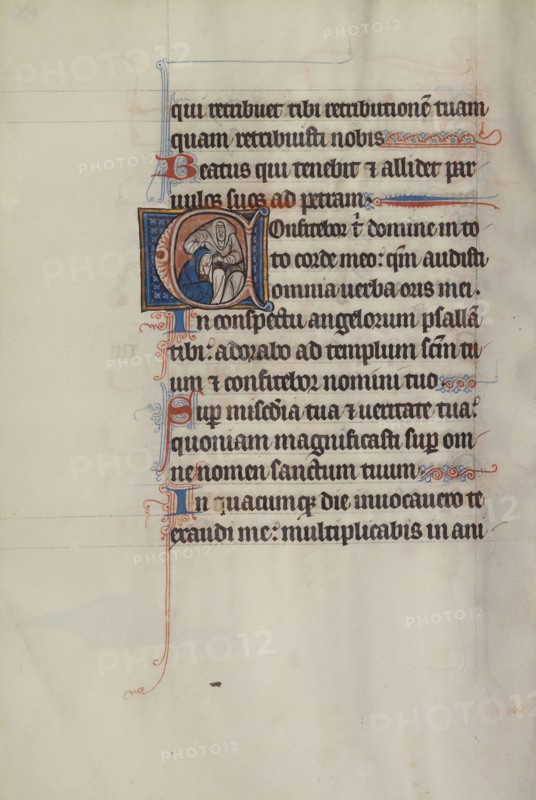 qui retribuet tibi retributionē tuam
quam retribuisti nobis
Beatus qui tenebit ⁊ allidet par
uulos suos ad petram.
Confitebor t̄ domine in to
to corde meo: qm̄ audisti
omnia uerba oris mei.
In conspectu angelorum psallā
tibi: adorabo ad templum scm̄ tu
um ⁊ confitebor nomini tuo
Sup miscdia tua ⁊ ueritate tua:
quoniam magnificasti sup om
ne nomen sanctum tuum
In quacumqꝫ die inuocauero te
exaudi me: multiplicabis in ani
PHOTO12